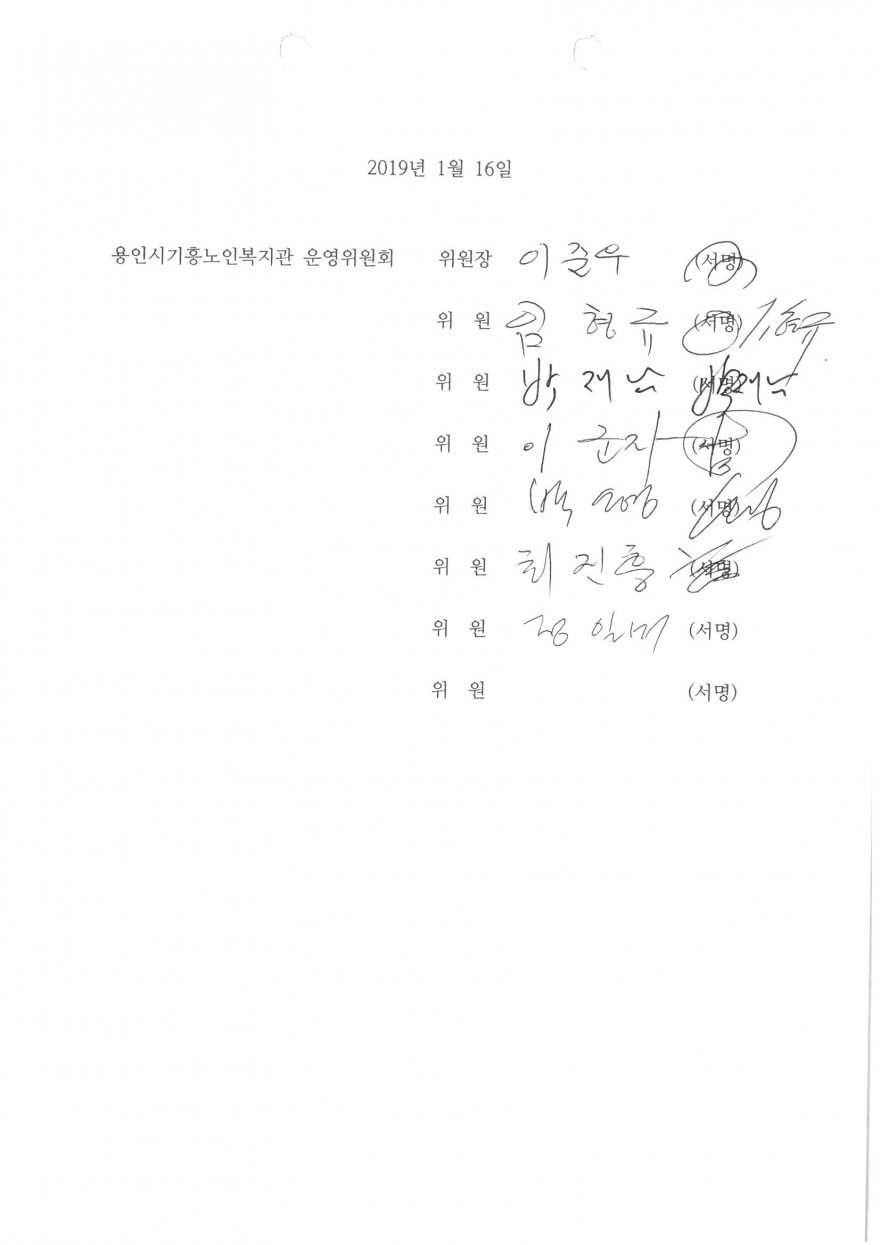 2019년 1월 16일
용인시기흥노인복지관 운영위원회 위원장 이준우 (서명)
위 원 임형규 (서명)
위 원 박재남 (서명)
위 원 이군자 (서명)
위 원 (서명)
위 원 최진흥 (서명)
위 원 정일미 (서명)
위 원 (서명)